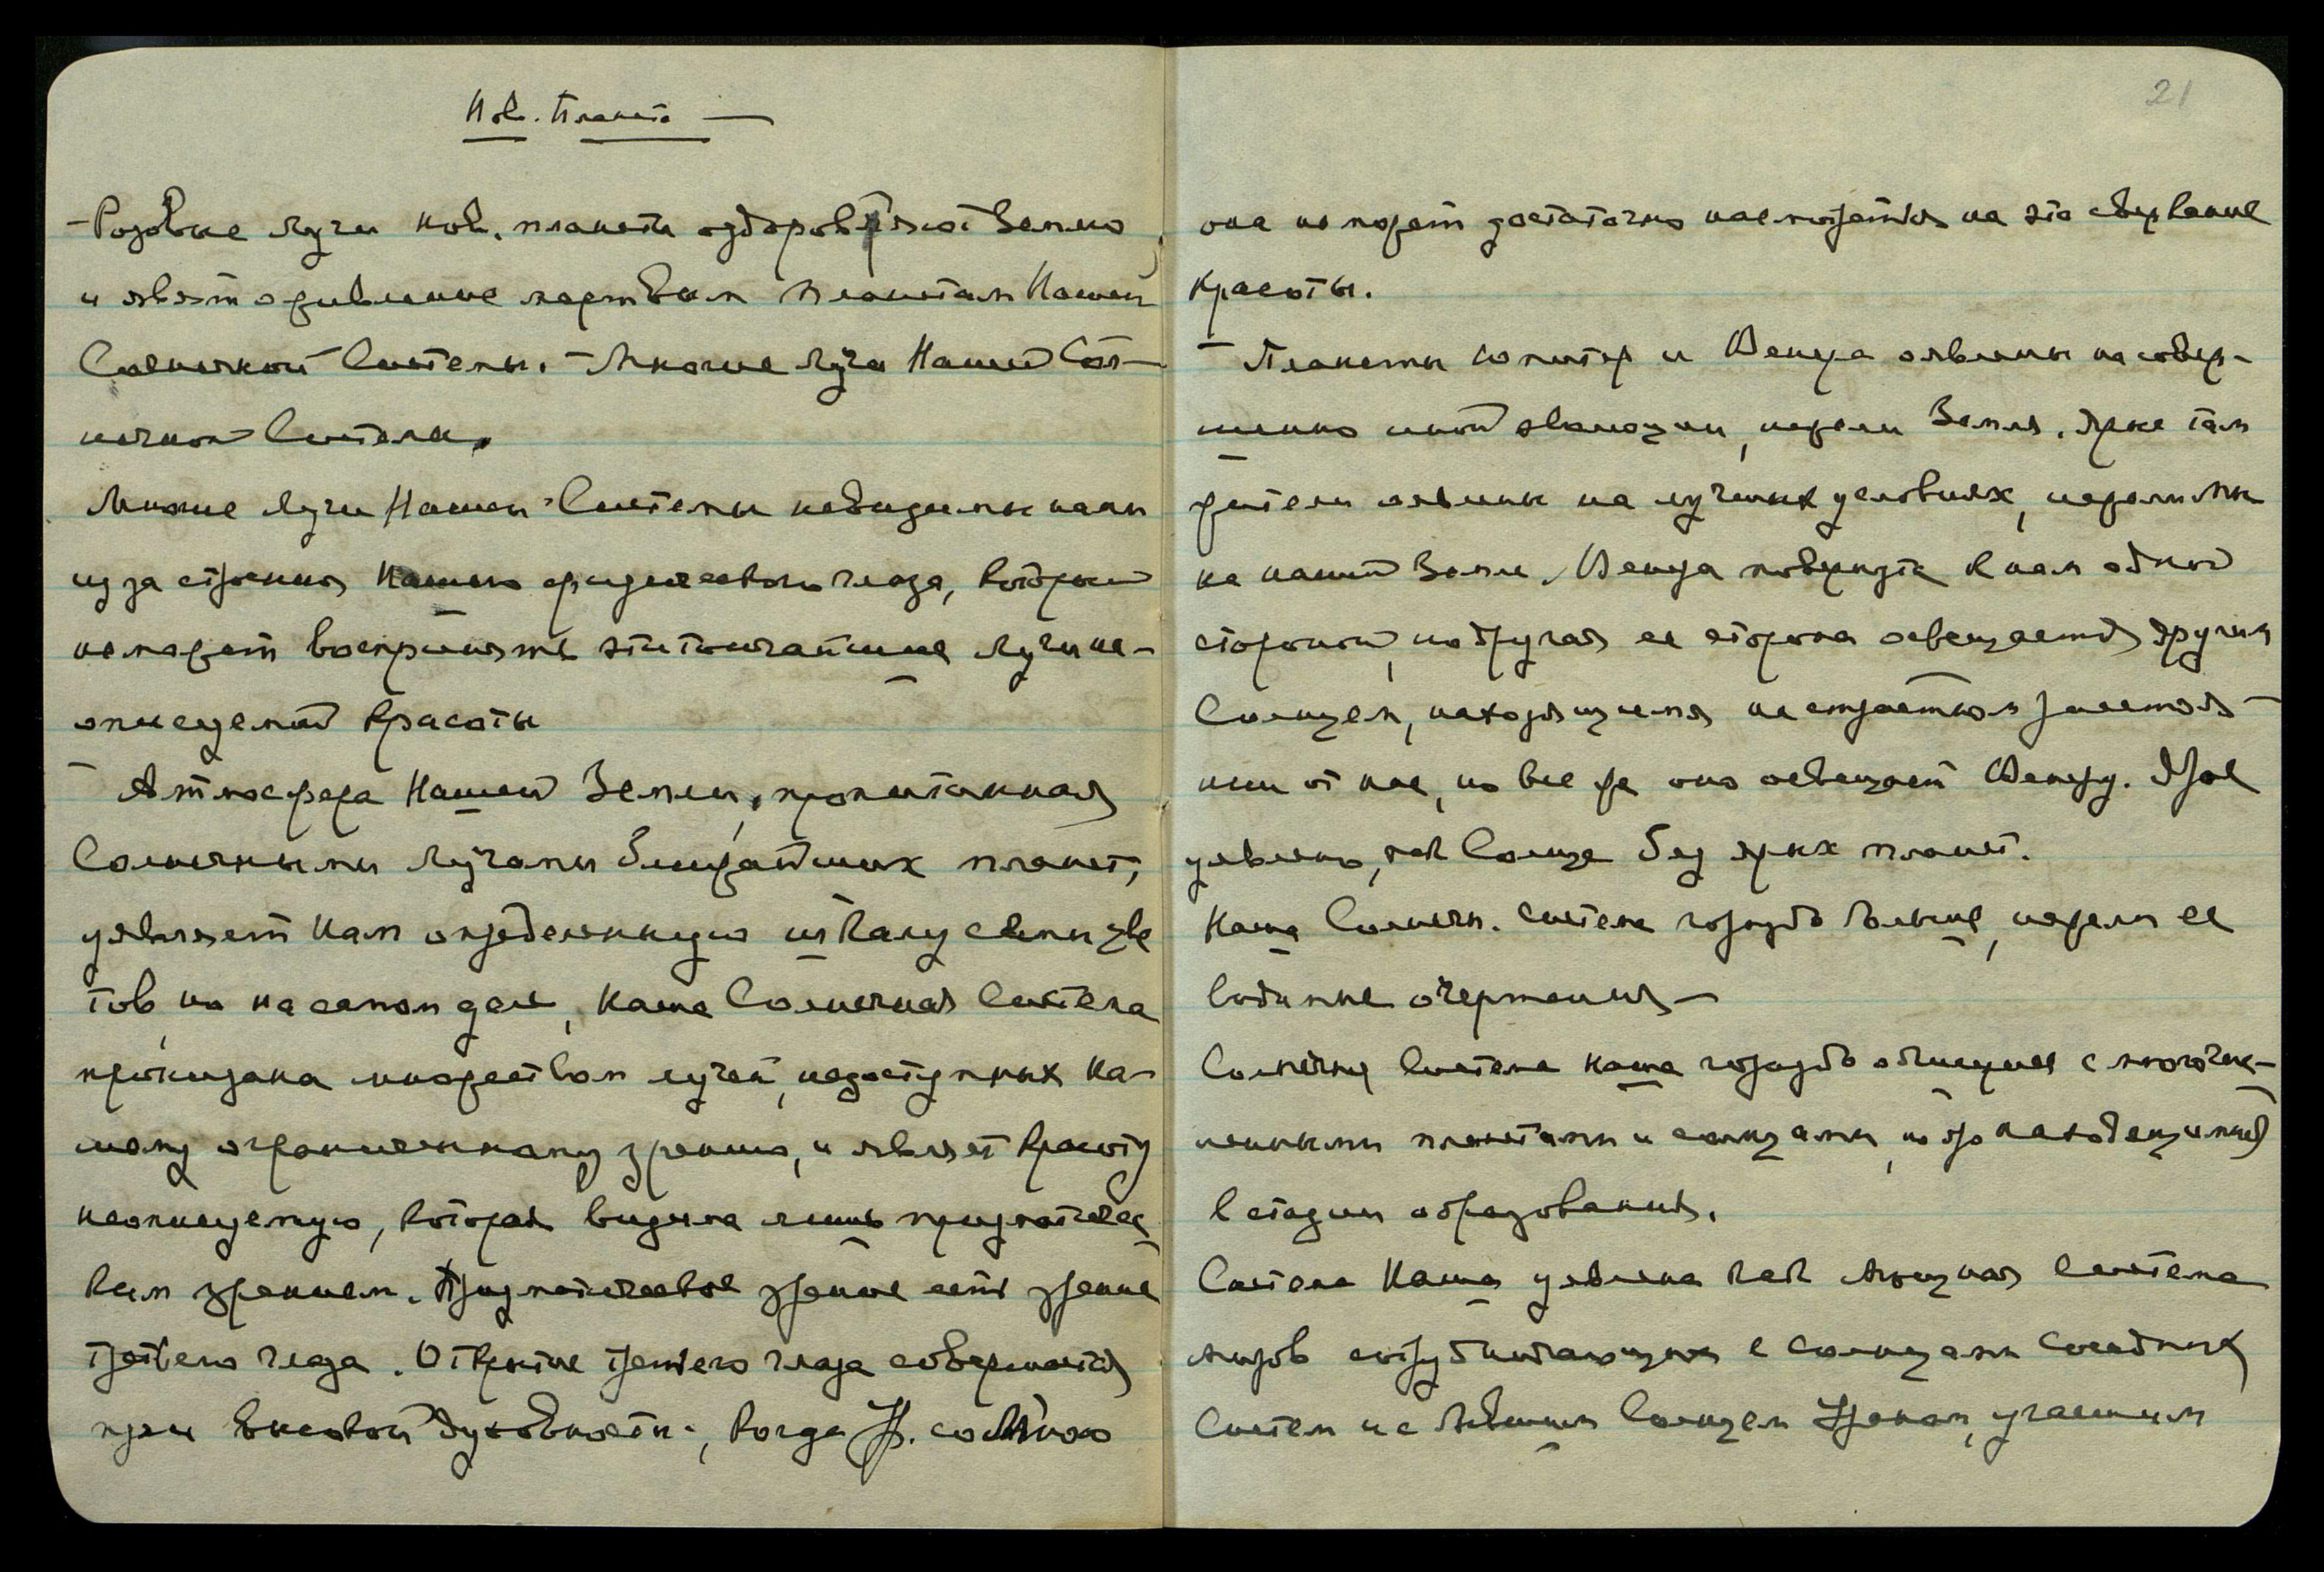 Нов. Планета —
- Розовые лучи нов. планеты оздоровляют Землю,
и явят оживление мертвым планетам Нашей
Солнечной Системы. - Многие лучи Нашей Сол-
нечной Системы.
Многие лучи Нашей Системы невидимы нам
из за строения Нашего физического глаза, который
не может воспринять эти тончайшие лучи не-
описуемой красоты
- Атмосфера Нашей Земли, пропитанная
Солнечными лучами ближайших планет,
уявляет нам определенную шкалу семи цве
тов, но на самом деле, наша Солнечная Система
пронизана множеством лучей, недоступных На-
шему ограниченному зрению, и являет красоту
неописуемую, которая видима лишь призматичес
ким зрением. Призматическое зрение есть зрение
третьего глаза. Открытие третьего глаза совершается
при высокой духовности, когда
21
она не может достаточно насмотреться на эти сверкание
красоты.
- Планеты Юпитер и Венера явлены на совер-
шенно иной эволюции, нежели Земля. Даже там
жители явлены на лучших условиях, нежели мы
на нашей Земле. Венера повернута к нам одной
стороной, но другая ее сторона освещается другим
Солнцем, находящимся на страшном расстоя-
нии от нас, но все же оно освещает Венеру. Оно
уявлено, как Солнце без ярких планет.
Наша Солнечн. система гораздо больше, нежели ее
видимые очертания —
Солнечная Система наша гораздо обширнее с многочис-
ленными планетами и солнцами, но находящимися
в стадии образования.
Система Наша уявлена как мощная система
миров сотрудничающих с солнцами соседних
Систем и с Бывшим Солнцем Ураном, учащим